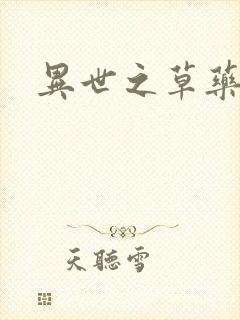 異世之草藥
天聽雪